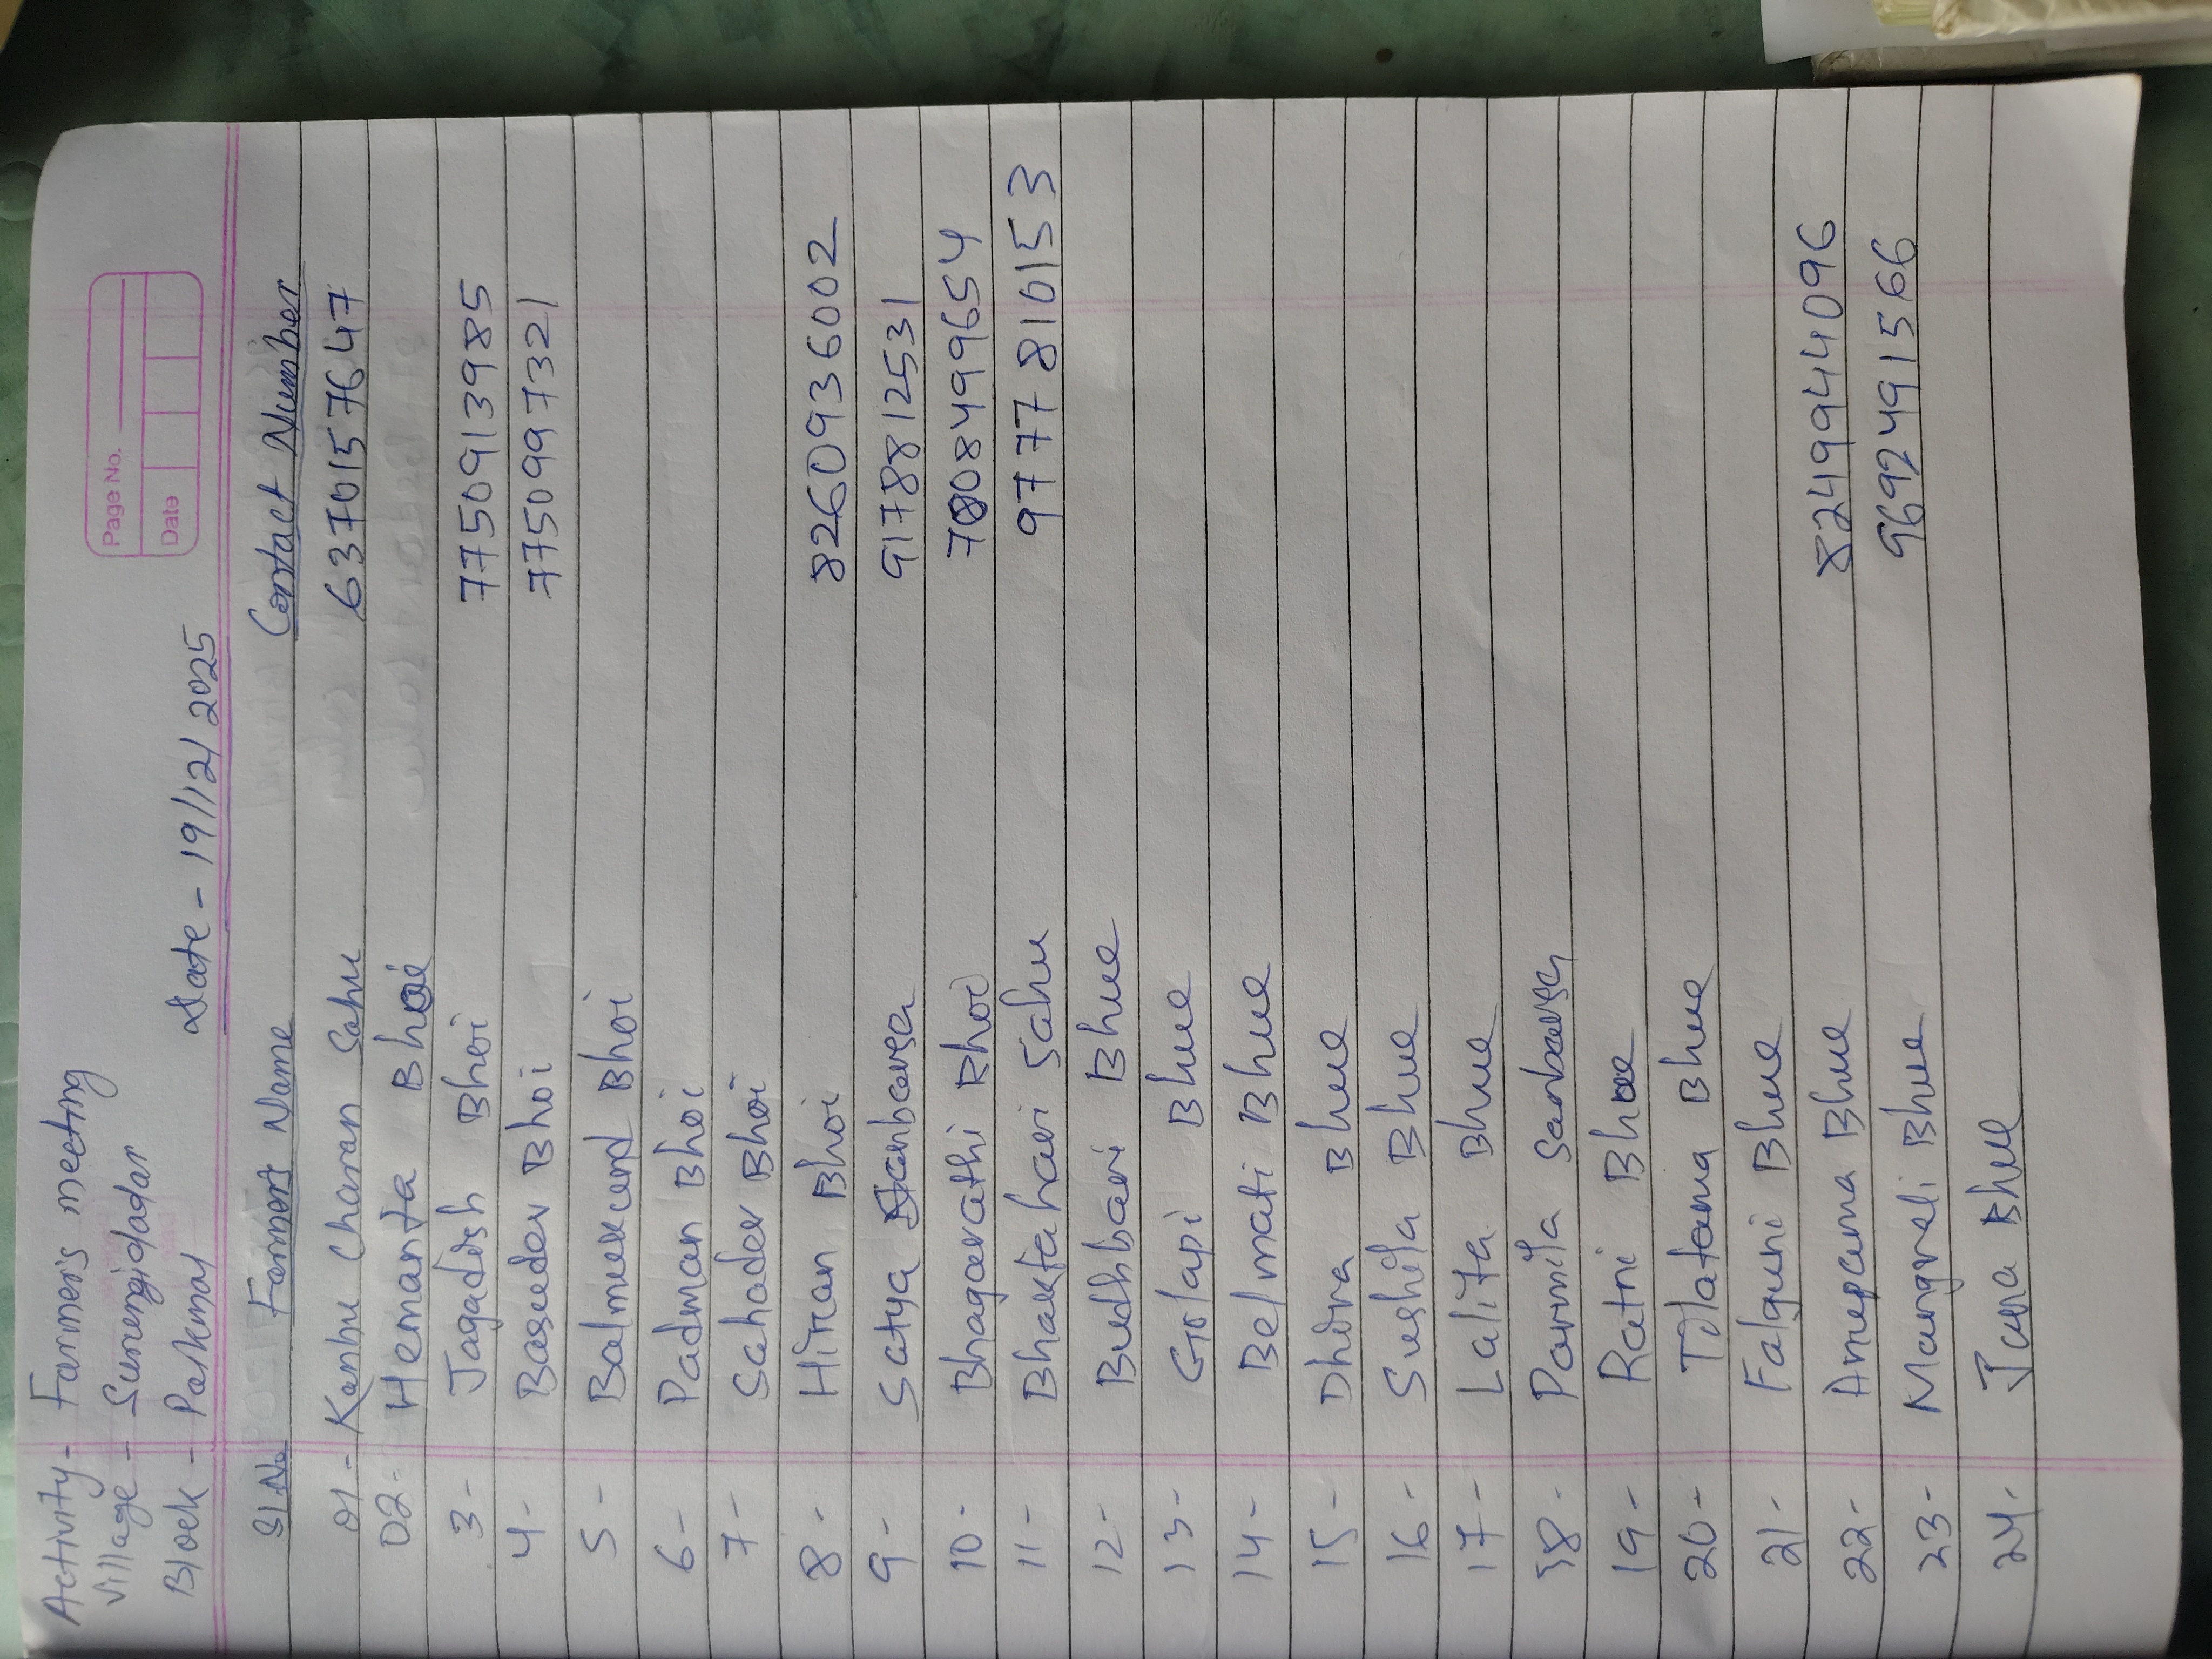 Page No.
Date
Activity - Farmer's meeting
Village - Surengidadar
Block - Paikmal Date - 19/12/2025
Sl.No Farmers Name Contact Number
01 - Kanhu Charan Sahu 6370157647
02 - Hemanta Bhoi
3 - Jagadish Bhoi 7750913985
4 - Basudev Bhoi 7750997321
5 - Balmukund Bhoi
6 - Padman Bhoi
7 - Sahadev Bhoi
8 - Hiran Bhoi 8260936002
9 - Satya 9178812531
10 - Bhagarathi Bhoi 7008499654
11 - Bhaktahari Sahu 9777810153
12 - Budhbari Bhue
13 - Golapi Bhue
14 - Belmati Bhue
15 - Dhira Bhue
16 - Sushila Bhue
17 - Lalita Bhue
18 - Parmila
19 - Ratni Bhue
20 - Tilatama Bhue
21 - Falguni Bhue
22 - Anupama Bhue 8249944096
23 - Bhue 9692491566
24 - Bhue